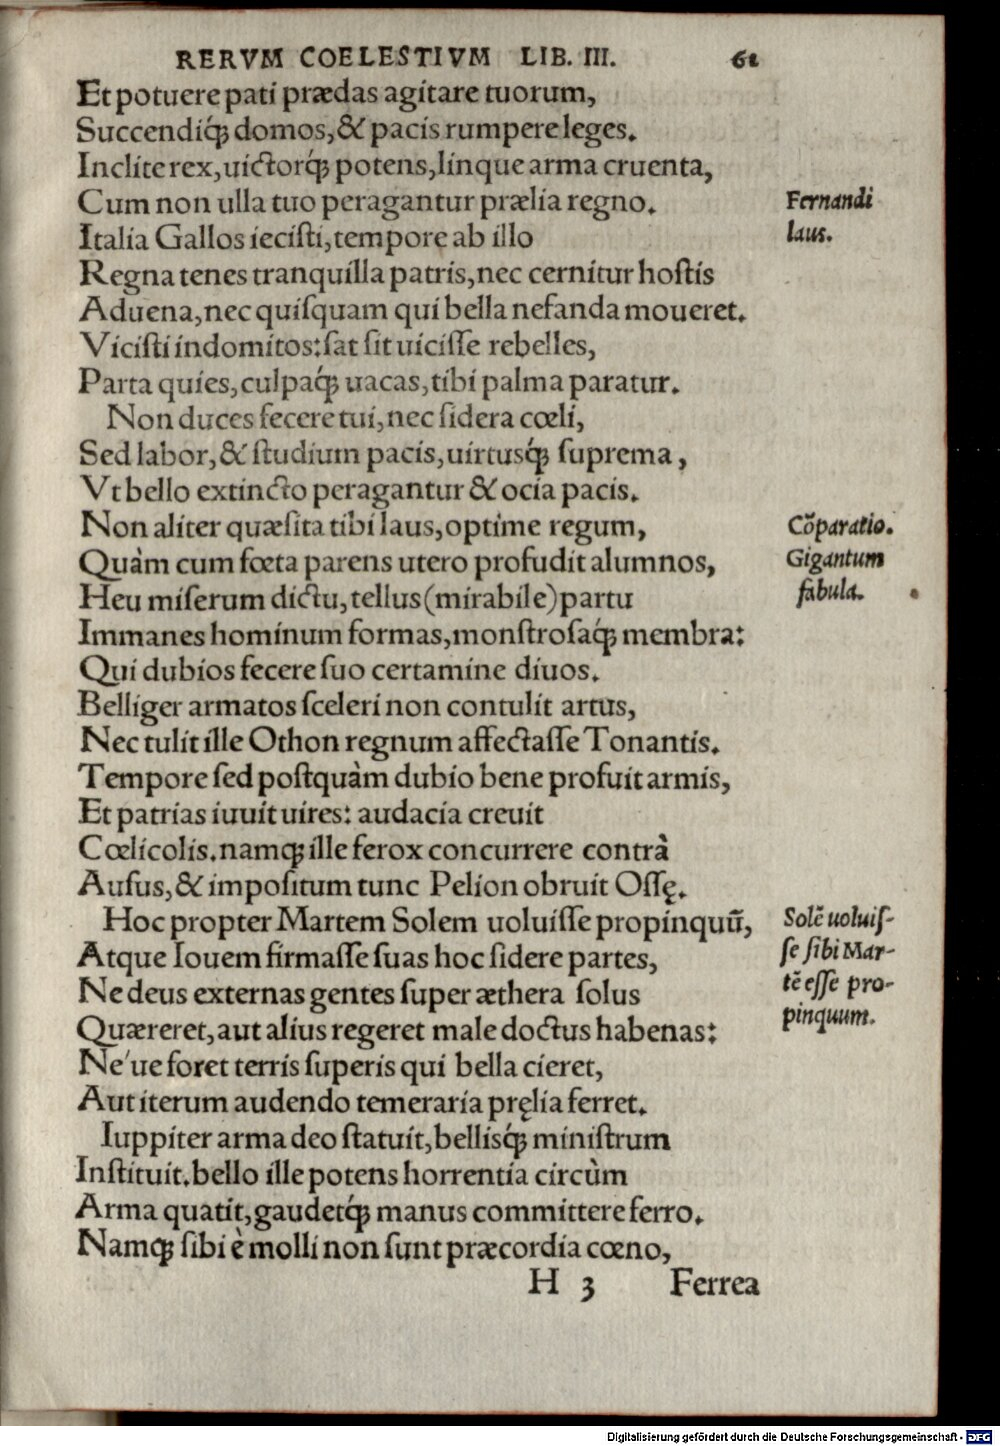 RERVM COELESTIVM LIB. III. 61
Et potuere pati prædas agitare tuorum,
Succendiq́; domos, & pacis rumpere leges.
Inclite rex, uictorq́; potens, linque arma cruenta,
Cum non ulla tuo peragantur prælia regno.
Fernandi
laus.
Italia Gallos iecisti, tempore ab illo
Regna tenes tranquilla patris, nec cernitur hostis
Aduena, nec quisquam qui bella nefanda moueret.
Vicisti indomitos: sat sit uicisse rebelles,
Parta quies, culpaq́; uacas, tibi palma paratur.
Non duces fecere tui, nec sidera cœli,
Sed labor, & studium pacis, uirtusq́; suprema,
Vt bello extincto peragantur & ocia pacis.
Non aliter quæsita tibi laus, optime regum,
Cōparatio.
Gigantum
fabula.
Quàm cum fœta parens utero profudit alumnos,
Heu miserum dictu, tellus (mirabile) partu
Immanes hominum formas, monstrosaq́; membra:
Qui dubios fecere suo certamine diuos.
Belliger armatos sceleri non contulit artus,
Nec tulit ille Othon regnum affectasse Tonantis.
Tempore sed postquàm dubio bene profuit armis,
Et patrias iuuit uires: audacia creuit
Cœlicolis. namq; ille ferox concurrere contrà
Ausus, & impositum tunc Pelion obruit Ossę.
Hoc propter Martem Solem uoluisse propinquū,
Solē uoluis-
se sibi Mar-
tē esse pro-
pinquum.
Atque Iouem firmasse suas hoc sidere partes,
Ne deus externas gentes super æthera solus
Quæreret, aut alius regeret male doctus habenas:
Ne'ue foret terris superis qui bella cieret,
Aut iterum audendo temeraria pręlia ferret.
Iuppiter arma deo statuit, bellisq́; ministrum
Instituit. bello ille potens horrentia circùm
Arma quatit, gaudetq́; manus committere ferro.
Namq; sibi è molli non sunt præcordia cœno,
H 3 Ferrea
Digitalisierung gefördert durch die Deutsche Forschungsgemeinschaft - DFG